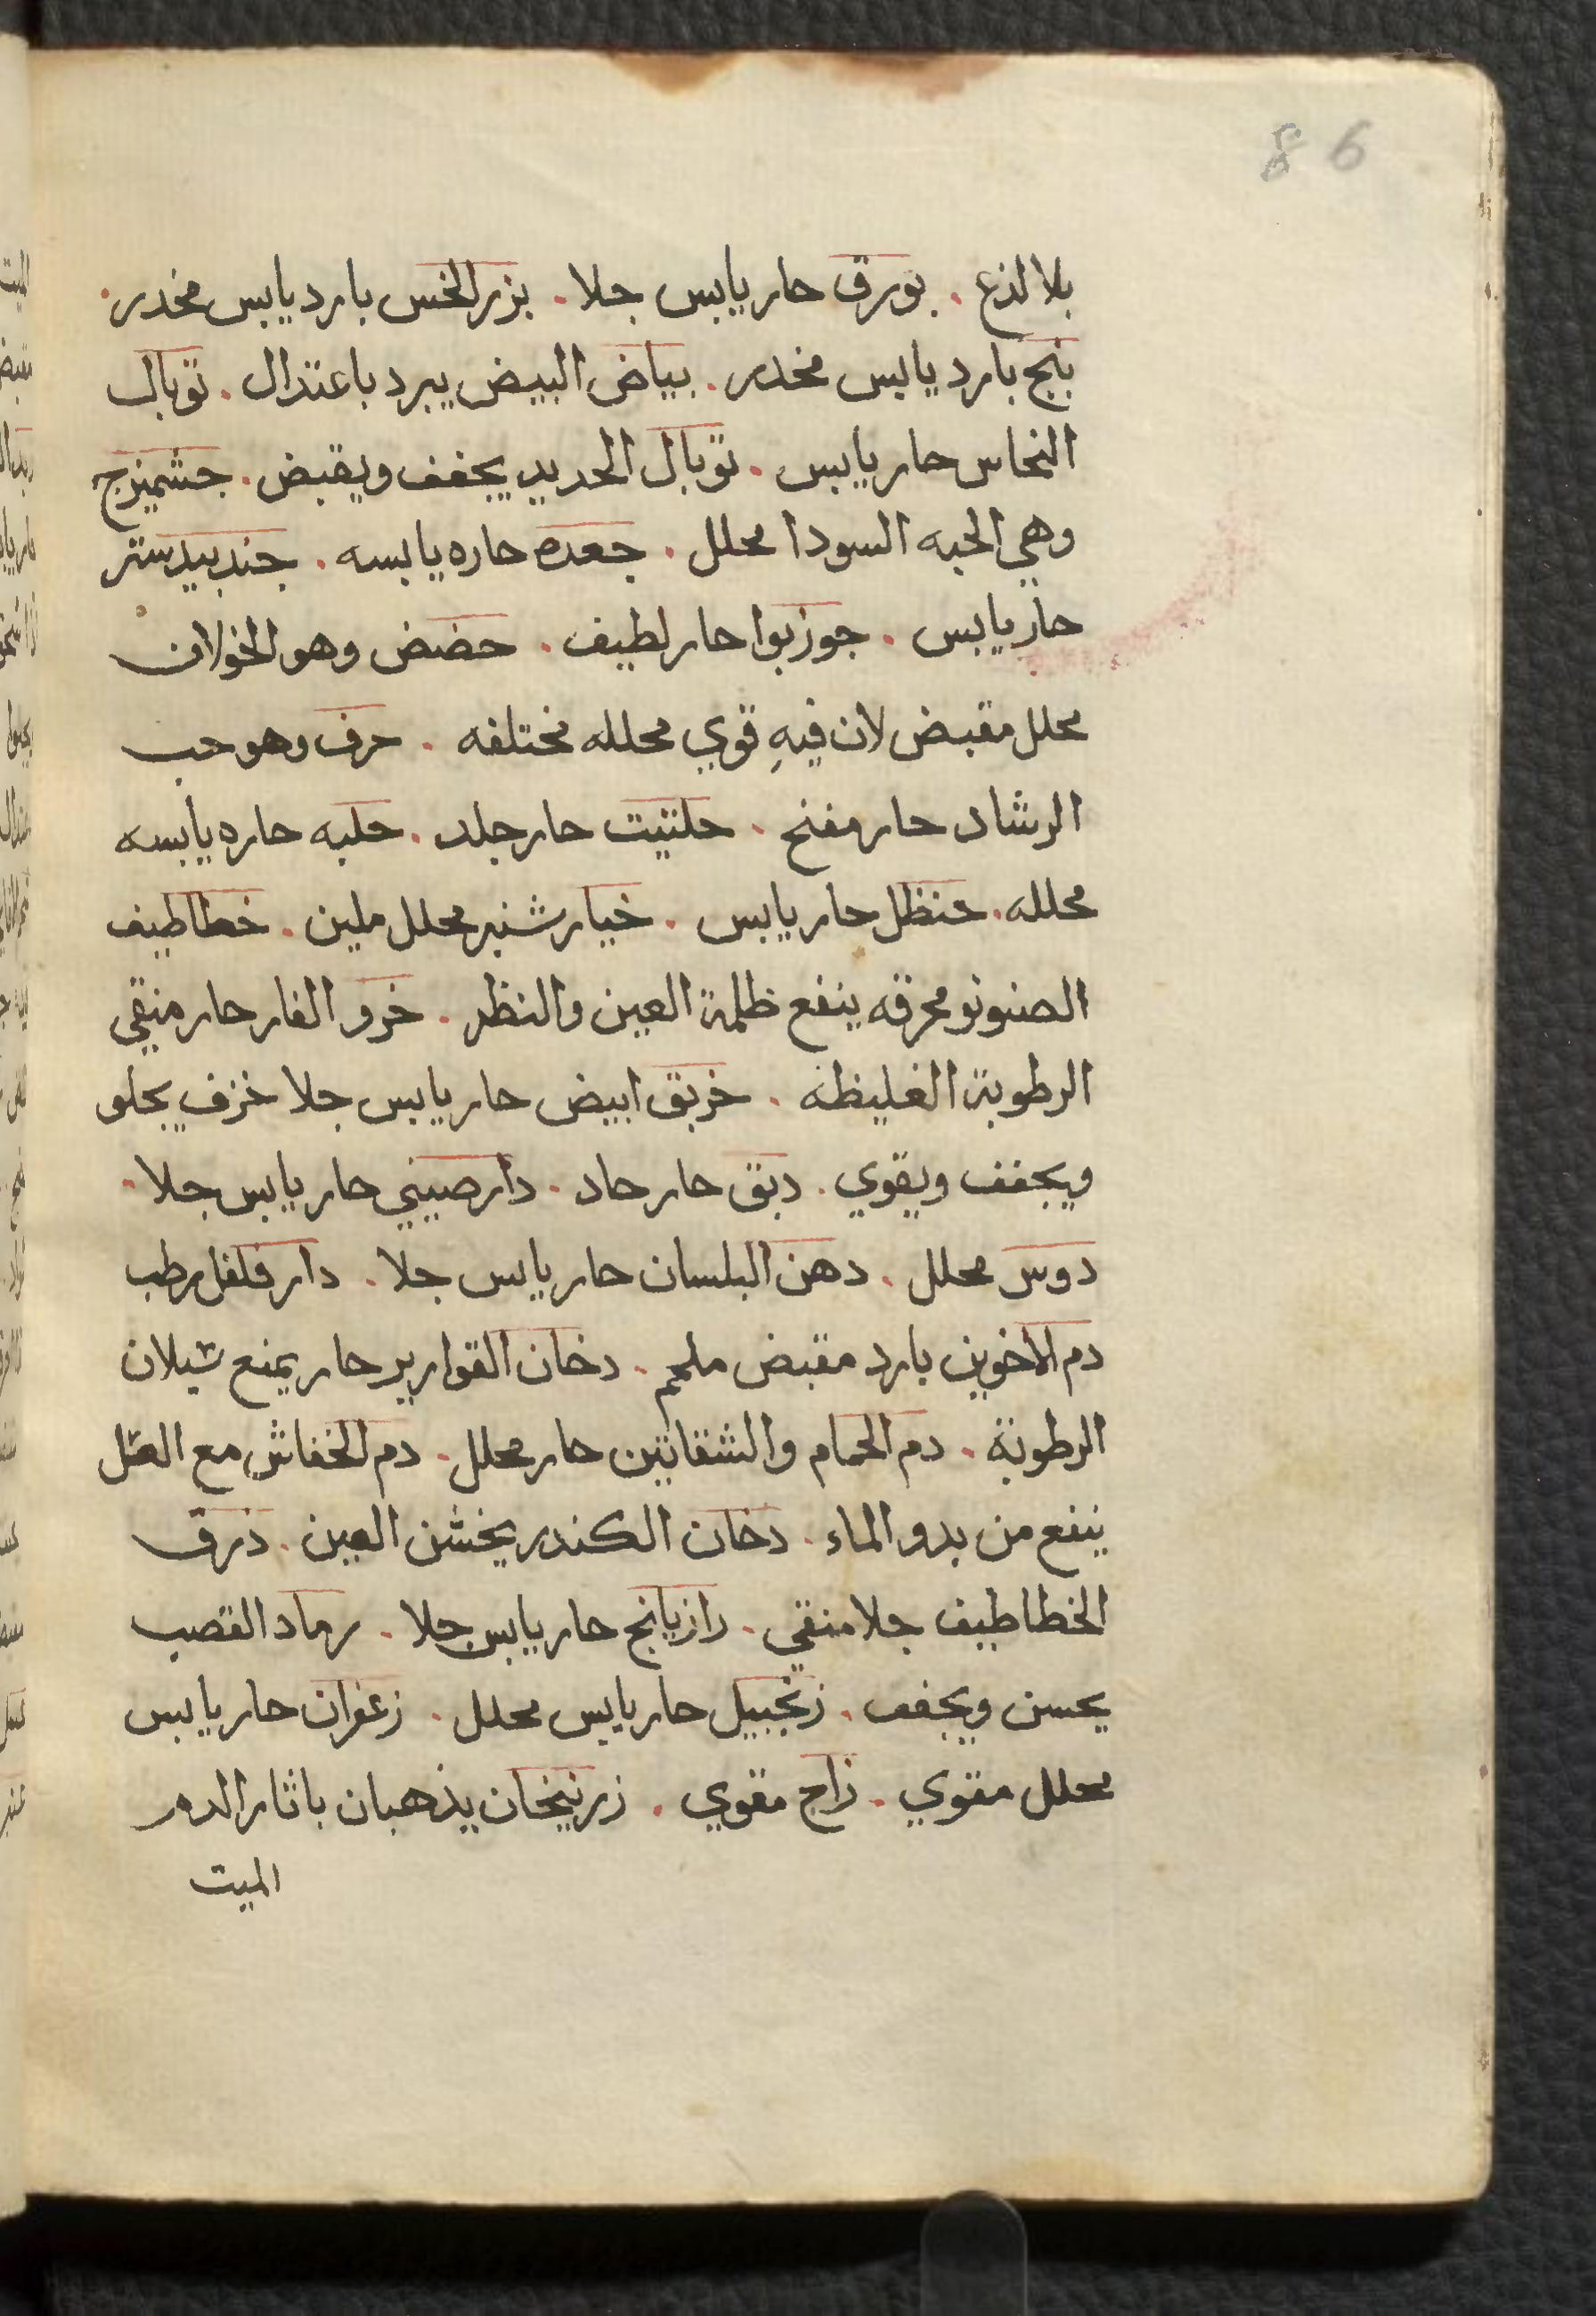 86
بلا لذع . بورق حار يابس جلا . بزر الخس بارد يابس مخدر .
بنج بارد يابس مخدر . بياض البيض يبرد باعتدال . توبال
النحاس حار يابس . توبال الحديد يجفف ويقبض . جشميزج
وهي الحبه السودا محلل . جعده حاره يابسه . جندبيدستر
حار يابس . جوزبوا حار لطيف . حضض وهو الخولان
محلل مقبض لان فيهِ قوي محلله مختلفه . حرف وهو حب
الرشاد حار مفتح . حلتيت حار جلد . حلبه حاره يابسه
محلله . حنظل حار يابس . خيار شنبر محلل ملين . خطاطيف
الصنونو محرقه ينفع ظلمة العين والنظر . خرو الفار حار منقي
الرطوبة الغليظه . خربق ابيض حار يابس جلا خزف يجلو
ويجفف ويقوي . دبق حار حاد . دارصيني حار يابس جلا .
دوس محلل . دهن البلسان حار يابس جلا . دار فلفل رطب
دم الاخوين بارد مقبض ملحم . دخان القوارير حار يمنع سيلان
الرطوبة . دم الحمام والشفانين حار محلل . دم الخفاش مع العسل
ينفع من بدو الماء . دخان الكندر يخشن العين . ذرق
الخطاطيف جلا منقي . رازيانج حار يابس جلا . رماد القصب
يحسن ويجفف . زنجبيل حار يابس محلل . زعفران حار يابس
محلل مقوي . زاج مقوي . زرنيخان يذهبان باثار الدم
الميت